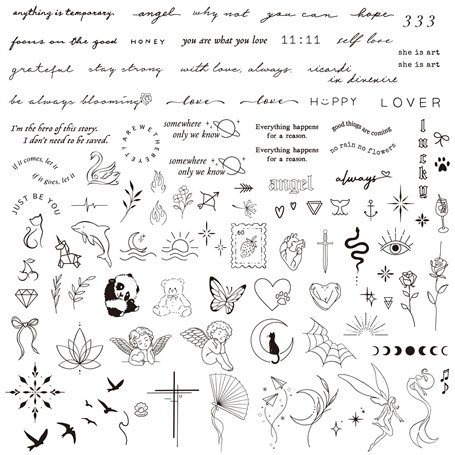 anything is temporary.
angel
why not
you can
hope
333
focus on the good
HONEY
you are what you love
11:11
self love
she is art
she is art
grateful
stay strong
with love, always.
ricordi
in divenire
be always blooming
love
love
HAPPY
LOVER
I'm the hero of this story.
I don't need to be saved.
somewhere
only we know
Everything happens
for a reason.
good things are coming
no rain no flowers
lucky
if it comes, let it
if it goes, let it
somewhere
only we know
Everything happens
for a reason.
angel
always
JUST BE YOU
60